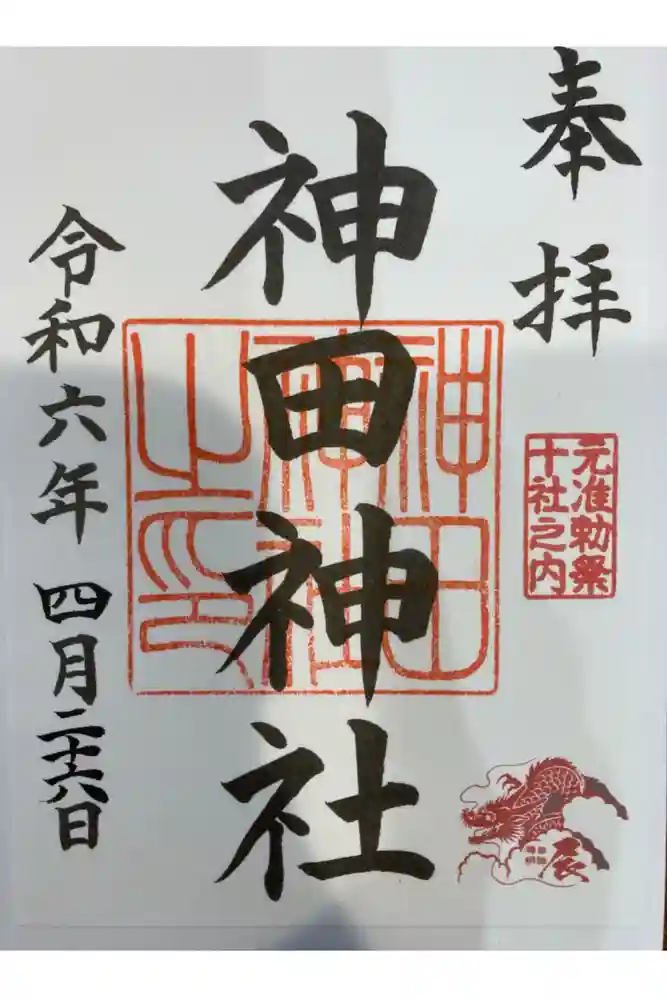 奉拝
元准勅祭
十社之内
辰
神田神社
神田
神社
之印
令和六年 四月二十六日